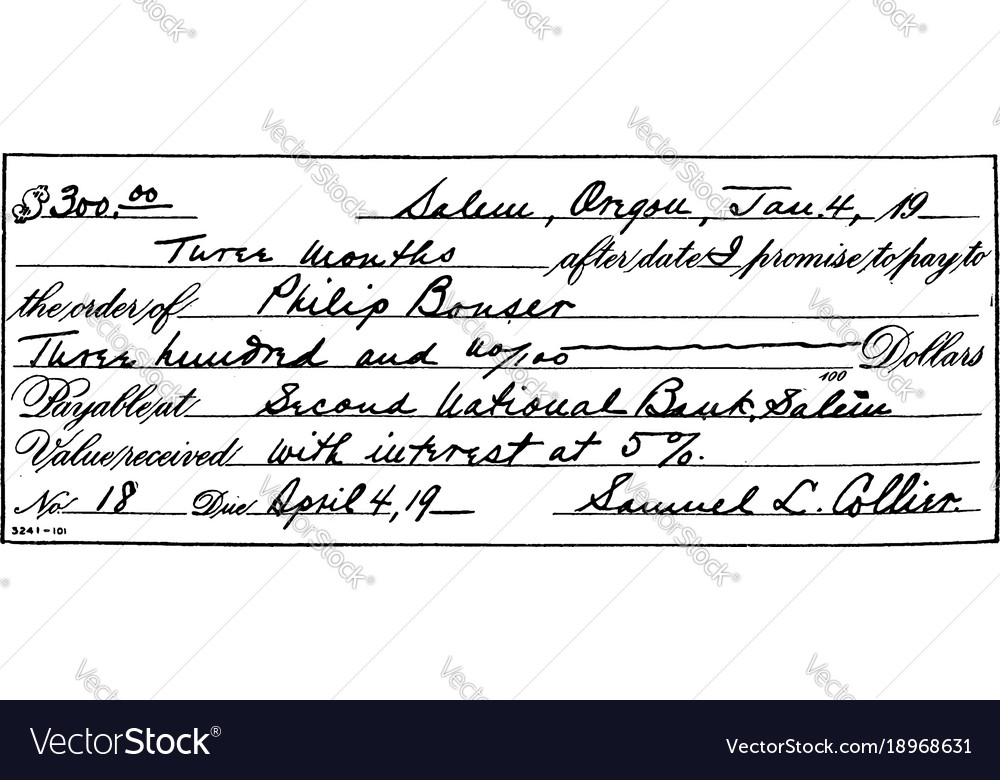 $300.00 Salem, Oregon, Jan. 4, 19
Three months after date I promise to pay to
the order of Philip Bonser
Three hundred and no/100 Dollars
100
Payable at Second National Bank, Salem
Value received with interest at 5%.
No. 18 Due April 4, 19 Samuel L. Collier.
3241-101
VectorStock® VectorStock.com/18968631